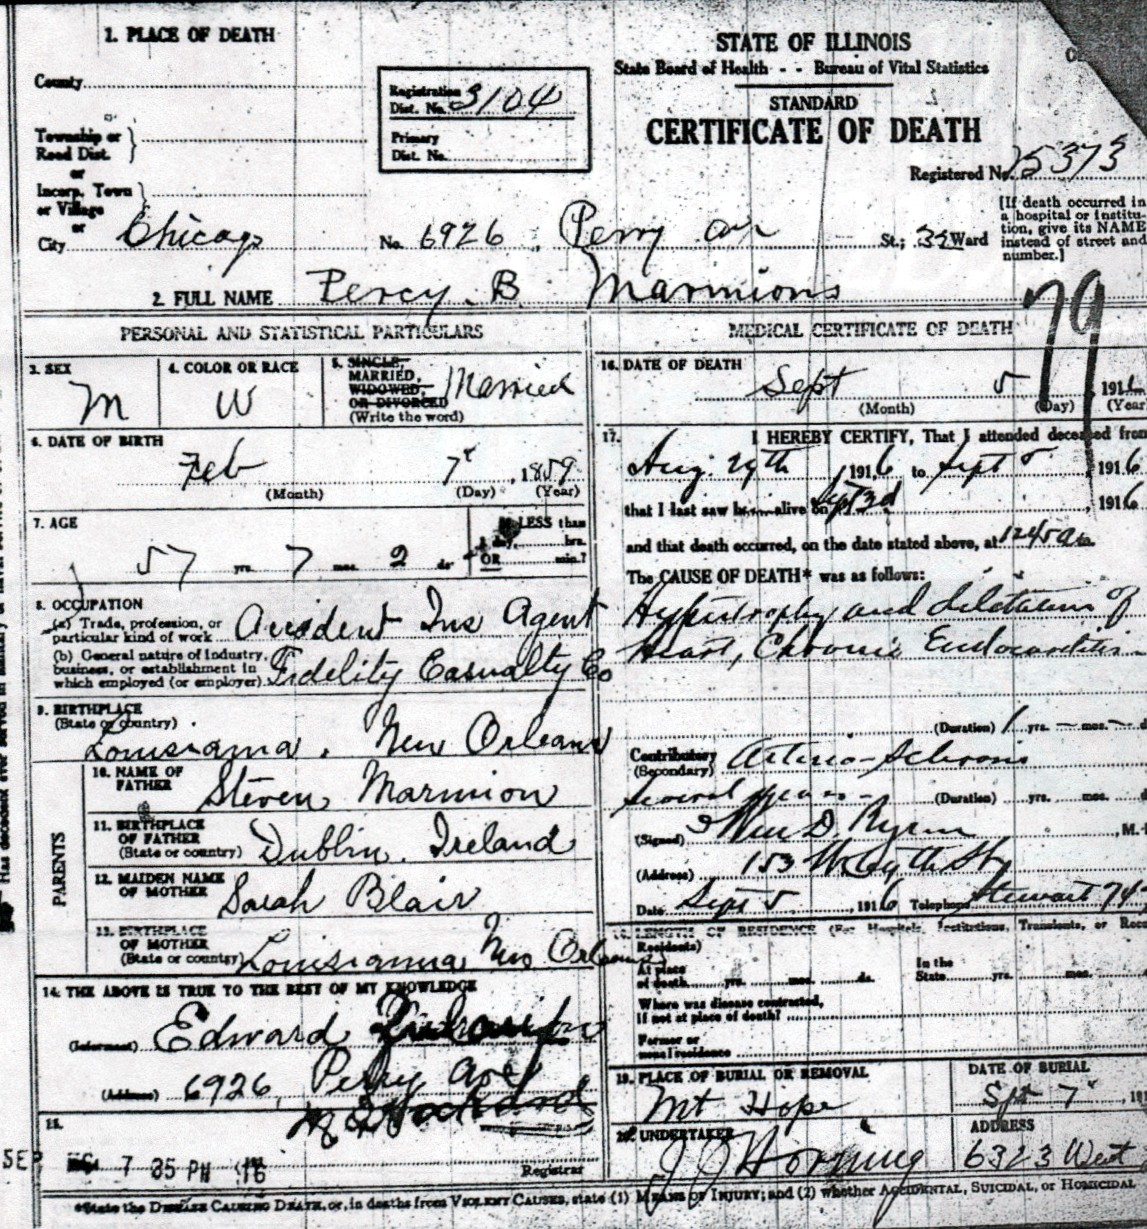 1. PLACE OF DEATH
County
Township or
Road Dist.
or
Incorp. Town
or Village
or
City Chicago No. 6926 Perry Ave St.; 32 Ward
Registration
Dist. No. 3104
Primary
Dist. No.
STATE OF ILLINOIS
State Board of Health - - Bureau of Vital Statistics
STANDARD
CERTIFICATE OF DEATH
Registered No. 25373
[If death occurred in
a hospital or institu-
tion, give its NAME
instead of street and
number.]
2. FULL NAME Percy. B Marmions
79
PERSONAL AND STATISTICAL PARTICULARS
3. SEX
M
4. COLOR OR RACE
W
5. SINGLE,
MARRIED,
WIDOWED,
OR DIVORCED
(Write the word)
Married
6. DATE OF BIRTH
Feb 7, 1859
(Month) (Day) (Year)
7. AGE
57 yrs. 7 mos. 2 ds.
If LESS than
1 day, hrs.
OR min.?
8. OCCUPATION
(a) Trade, profession, or
particular kind of work Accident Ins Agent
(b) General nature of industry,
business, or establishment in
which employed (or employer) Fidelity Casualty Co
9. BIRTHPLACE
(State or country)
Louisiana. New Orleans
PARENTS
10. NAME OF
FATHER
Steven Marmion
11. BIRTHPLACE
OF FATHER
(State or country) Dublin. Ireland
12. MAIDEN NAME
OF MOTHER
Sarah Blair
13. BIRTHPLACE
OF MOTHER
(State or country) Louisianna New Orleans
14. THE ABOVE IS TRUE TO THE BEST OF MY KNOWLEDGE
(Informant) Edward
(Address) 6926 Perry Ave
15.
SEP 7 35 PM 16
Registrar
MEDICAL CERTIFICATE OF DEATH
16. DATE OF DEATH
Sept 5 1916
(Month) (Day) (Year
17. I HEREBY CERTIFY, That I attended deceased from
Aug. 29th 1916 to Sept 5, 1916
that I last saw h alive on Sept 3d, 1916
and that death occurred, on the date stated above, at 1245 a m.
The CAUSE OF DEATH* was as follows:
Hypertrophy and dilatation of
Heart, Chronic Endocarditis
(Duration) 1 yrs. — mos. —
Contributory
(Secondary) Arterio-Sclerosis
several years (Duration) yrs. mos.
(Signed) Wm D. Ryan, M.
(Address) 153 W
Date Sept 5, 1916 Telephone Stewart 74
18. LENGTH OF RESIDENCE (For Hospitals, Institutions, Transients, or Rece
Residents)
At place
of death yrs. mos. ds.
In the
State yrs. mos.
Where was disease contracted,
If not at place of death?
Former or
usual residence
19. PLACE OF BURIAL OR REMOVAL
Mt Hope
DATE OF BURIAL
Spt 7, 191
20. UNDERTAKER
J J Horning
ADDRESS
6323 West
*State the DISEASE CAUSING DEATH, or, in deaths from VIOLENT CAUSES, state (1) MEANS OF INJURY; and (2) whether ACCIDENTAL, SUICIDAL, or HOMICIDAL